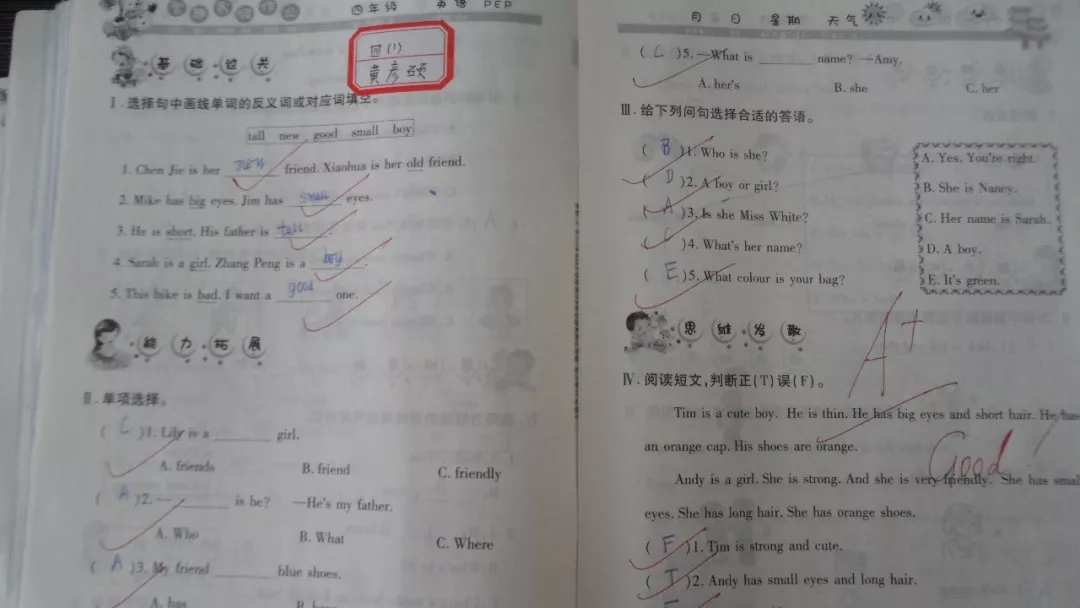 四年级 英语 PEP
四(1)
黄彦硕
基础过关
Ⅰ.选择句中画线单词的反义词或对应词填空。
tall new good small boy
1. Chen Jie is her new friend. Xiaohua is her old friend.
2. Mike has big eyes. Jim has small eyes.
3. He is short. His father is tall.
4. Sarah is a girl. Zhang Peng is a boy.
5. This bike is bad. I want a good one.
能力拓展
Ⅱ.单项选择。
( C )1. Lily is a ______ girl.
A. friends B. friend C. friendly
( A )2. —______ is he? —He's my father.
A. Who B. What C. Where
( A )3. My friend ______ blue shoes.
A. has B. have
月 日 星期 天气
( C )5. —What is ______ name? —Amy.
A. her's B. she C. her
Ⅲ.给下列问句选择合适的答语。
( B )1. Who is she?
( D )2. A boy or girl?
( A )3. Is she Miss White?
( C )4. What's her name?
( E )5. What colour is your bag?
A. Yes. You're right.
B. She is Nancy.
C. Her name is Sarah.
D. A boy.
E. It's green.
思维发散
A+
Ⅳ.阅读短文,判断正(T)误(F)。
Tim is a cute boy. He is thin. He has big eyes and short hair. He has
an orange cap. His shoes are orange.
Good!
Andy is a girl. She is strong. And she is very friendly. She has small
eyes. She has long hair. She has orange shoes.
( F )1. Tim is strong and cute.
( T )2. Andy has small eyes and long hair.